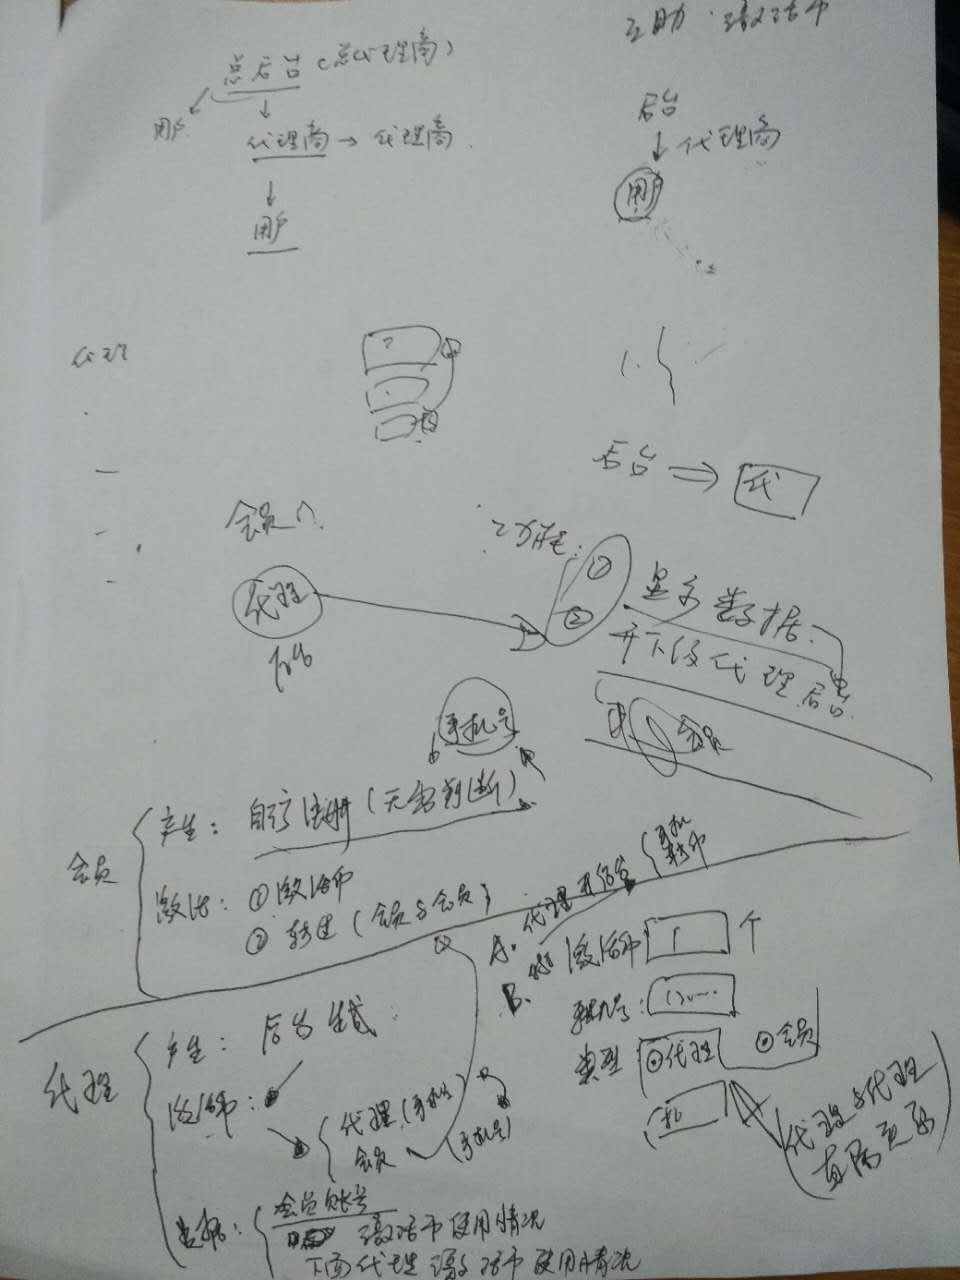 互助 激活币
总后台(总代理商)
用户
代理商→代理商
用户
后台
代理商
用户
代理
1.
后台
代
会员
2功能:
①
②
代理
后台
显示数据
开下级代理后台
会员
手机号
会员
产生: 自行注册(无需判断)
激活: ①激活币
②转送(会员与会员)
A. 代理
手机
转币
B. 激活币 个
手机号: 1
类型 代理 会员
代理与代理
代理
产生: 后台生成
激活币:
代理(手机号)
会员 (手机号)
数据: 会员账号
激活币使用情况
下面代理激活币使用情况